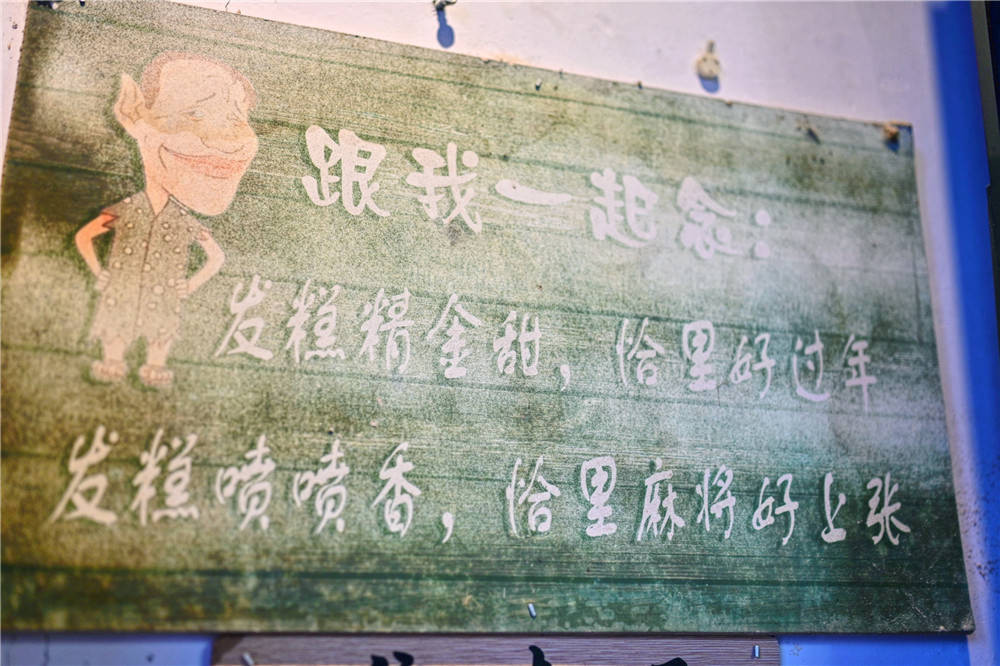 跟我一起念:
发糕精金甜，恰里好过年
发糕喷喷香，恰里麻将好上张